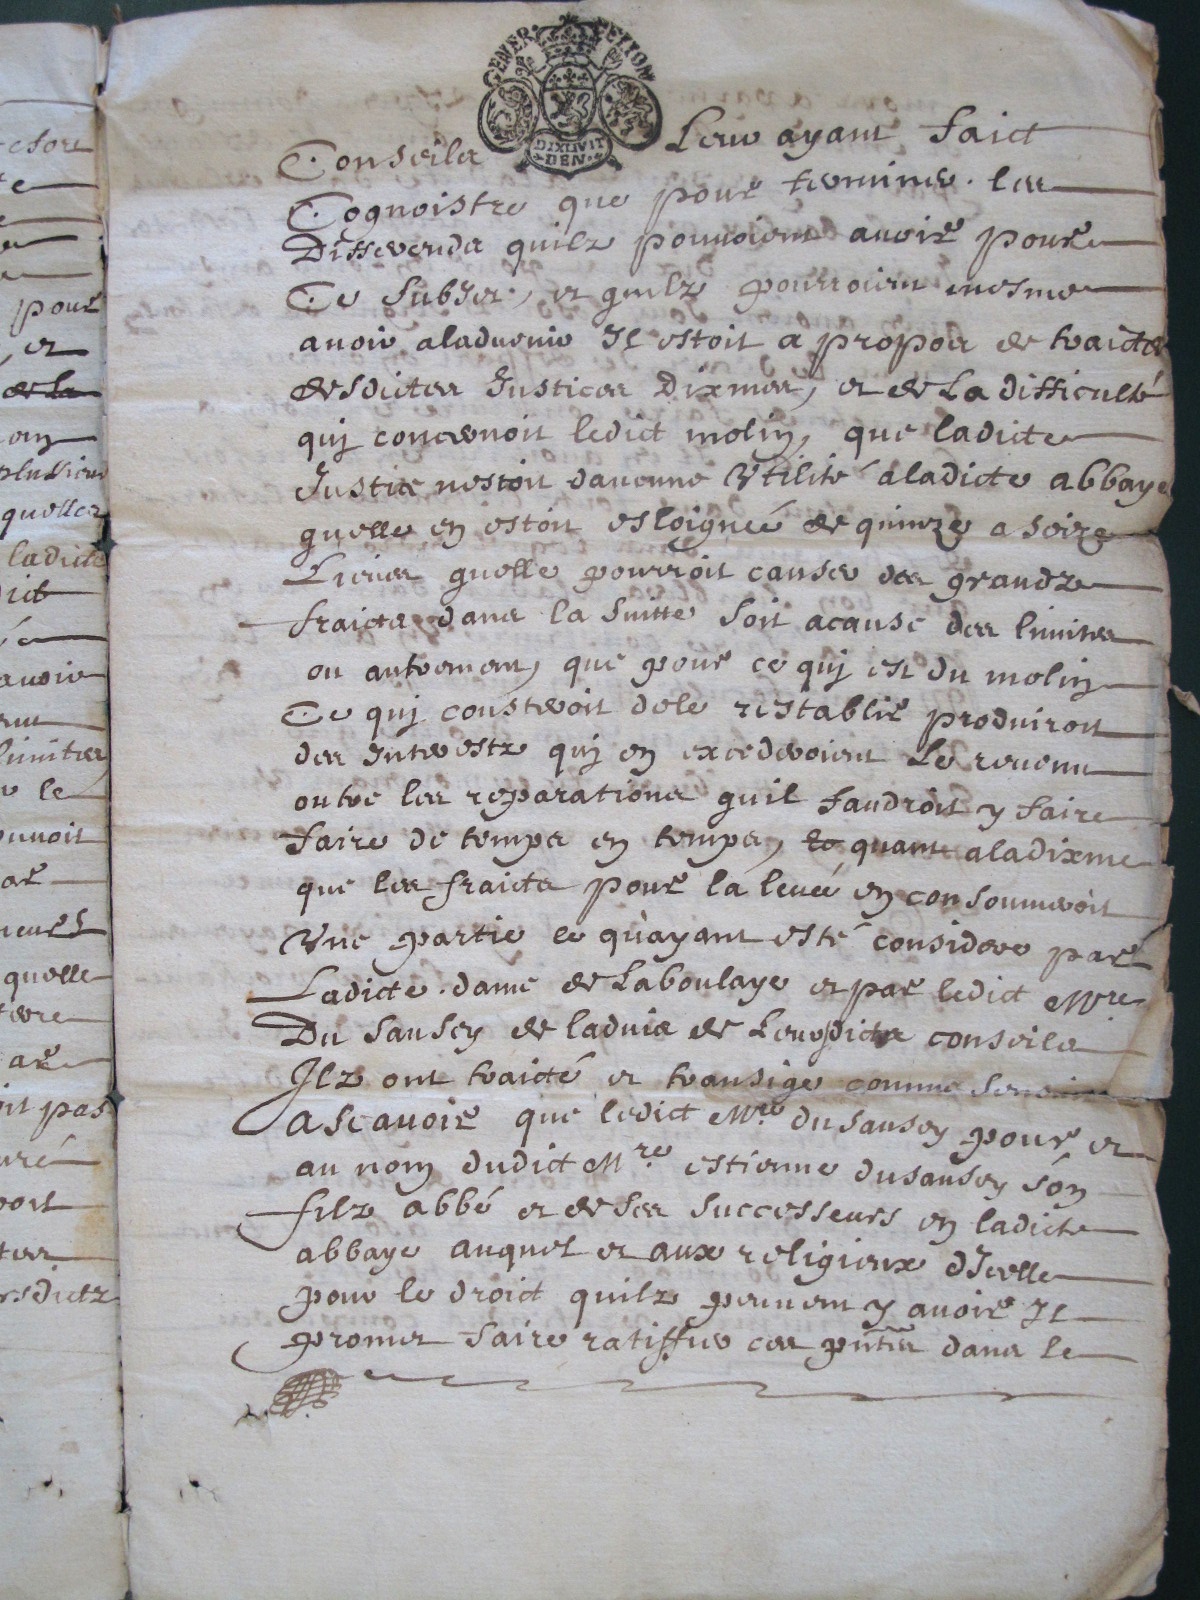 GENER. DE LYON
DIXHVIT
DEN.
Conseils Leur ayant faict
Cognoistre que pour terminer les
Differends quilz pouvoient avoir pour
Ce Subget, et quilz pourroient mesme
avoir aladvenir Il estoit a propos de traicter
desdictes Justices Dixmes, et de La difficulté
quy concernoit ledict molin, que ladicte
Justice nestoit daucune Vtilité aladicte abbaye
quelle en estoit esloignée de quinze a seize
Lieues quelle pourroit causer des grandz
fraictz dans la Suitte soit acause des limites
ou autrement, que pour ce quy est du molin
Ce quy cousteroit dele restablir produiroit
des Interestz quy en excederoient Le revenu
outre les reparations quil faudroit y faire
faire de temps en temps, et quant aladixme
que les fraicts pour la levée en consommeroit
Vne partie ce quayant esté considere par
Ladicte dame de Laboulaye et par ledict Mre
Du Sausey de ladvis de Leursdictz conseils
Ilz ont traicté et transige comme sensuit
Ascavoir que ledict Mre du Sausey pour et
au nom dudict Mre estienne dusausey son
filz abbé et de ses successeurs en ladicte
abbaye auquel et aux religieux dIcelle
pour le droict quilz peuvent y avoir Il
promet faire ratiffier ces pntes dans le
pour
, et
de la
plusieurs
quelles
ladicte
avoir
limites
le
quelle
pas